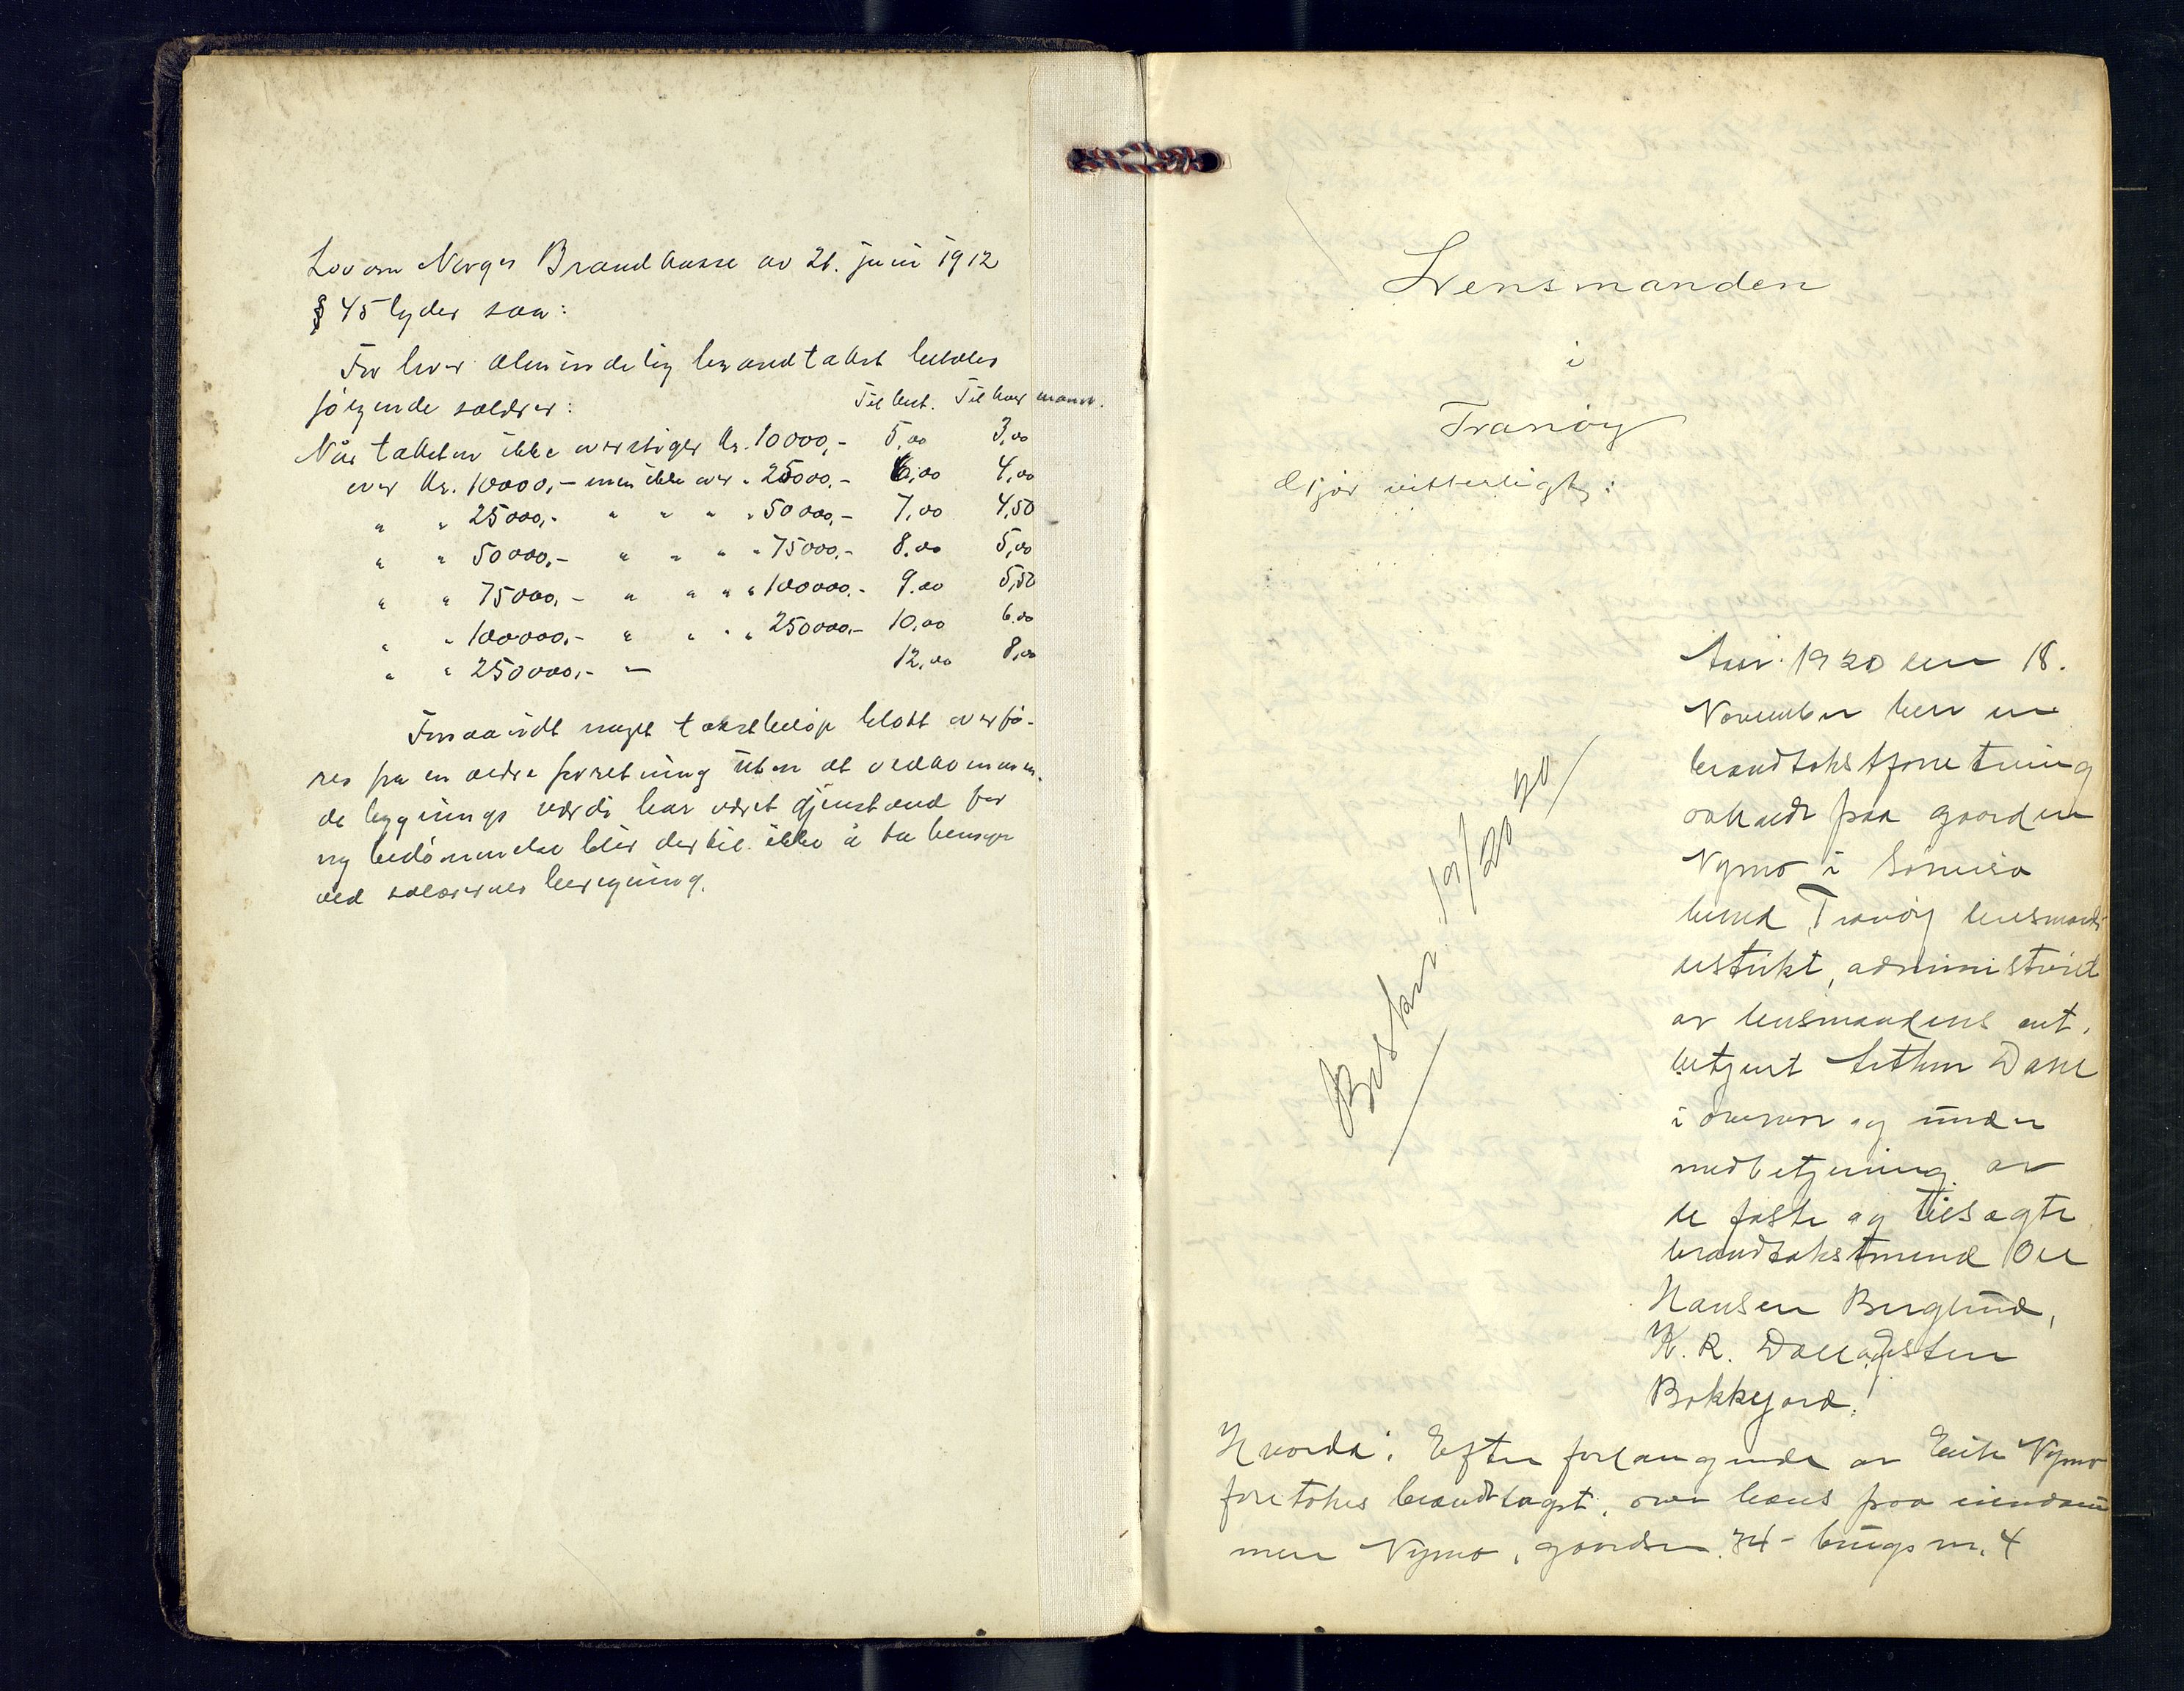 Lov om Norges Brandkasse av 21. juni 1912
§ 45 lyder saa:
For hver almindelig brandtakst betales
følgende salærer: Til best. Til hver mann.
Når taksten ikke overstiger kr. 10000,- 5,00 3,00
over kr. 10000,- men ikke over " 25000,- 6,00 4,00
" " 25000,- " " " " 50000,- 7,00 4,50
" " 50000,- " " " " 75000,- 8,00 5,00
" " 75000,- " " " " 100000,- 9,00 5,50
" " 100000,- " " " " 250000,- 10,00 6,00
" " 250000,- — 12,00 8,00
Forsaavidt noget takstbeløp blott overfø-
res fra en ældre forretning uten at vedkommen-
de bygnings værdi har været gjenstand for
ny bedømmelse blir dertil ikke å ta hensyn
ved salærernes beregning.
Lensmanden
i
Tranøy
Gjør vitterligt:
Aar 1920 den 18.
November blev en
brandtakstforretning
avholdt paa gaarden
Nymo i Sørreisa
herred, Tranøy lensmands
distrikt, administrert
av lensmandens aut.
betjent Arthur Dahl
i overvær og under
medbetjening av
de faste og tilsagte
brandtakstmend Ole
Hansen Berglund,
K. R. og
Bakkejord.
Hvorda: Efter forlangende av Nymo
foretokes brandtagst over hans paa eiendom
men Nymo, gaardsn. 74 - brugs nr. 4
Beskr. 19/20 20